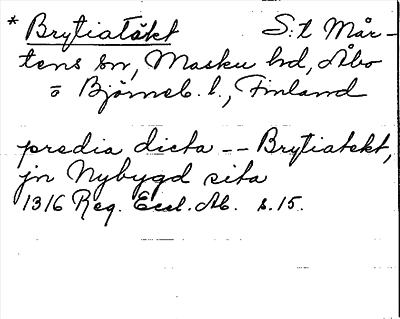 * Brytiatäkt S:t Mår-
tens sn, Masku hd, Åbo
o Björneb. l., Finland
predia dicta -- Brytiatekt,
jn Nybygd sita
1316 Reg. Eccl. Ab. s. 15.